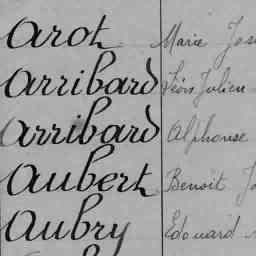 Arot Marie Jos
Arribard Léon Julien
Arribard Alphonse
Aubert Benoit Jo
Aubry Edouard